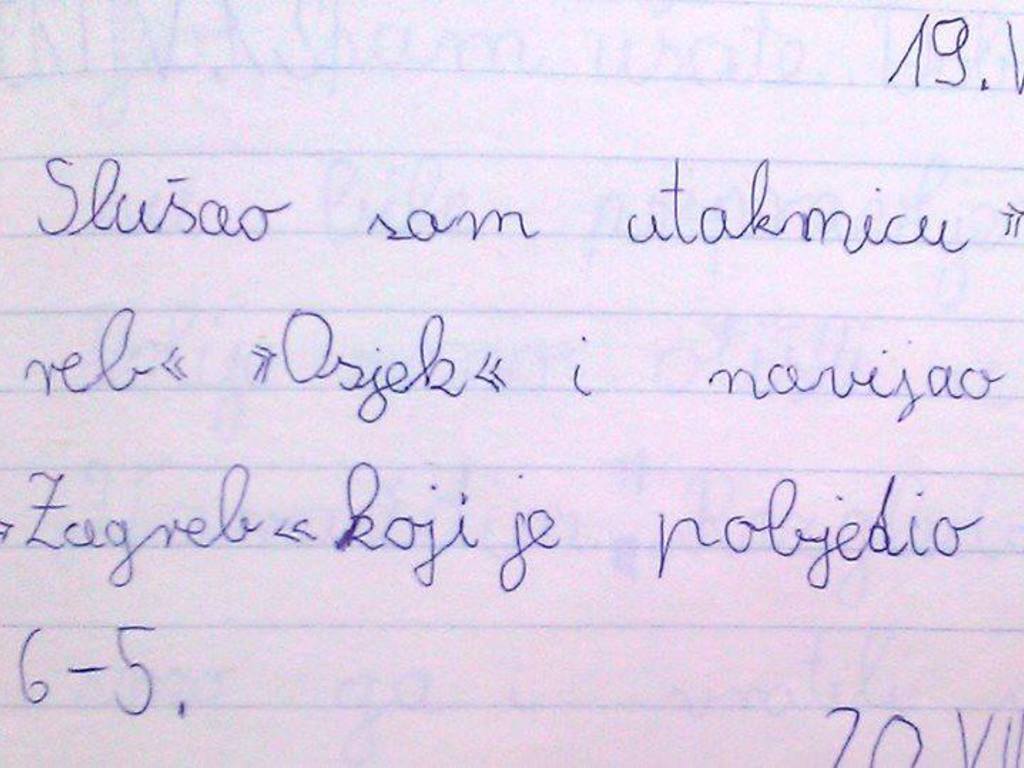 19.V
Slušao sam utakmicu »
reb« »Osjek« i navijao
»Zagreb« koji je pobjedio
6-5.
20 VII